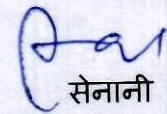 सेनानी